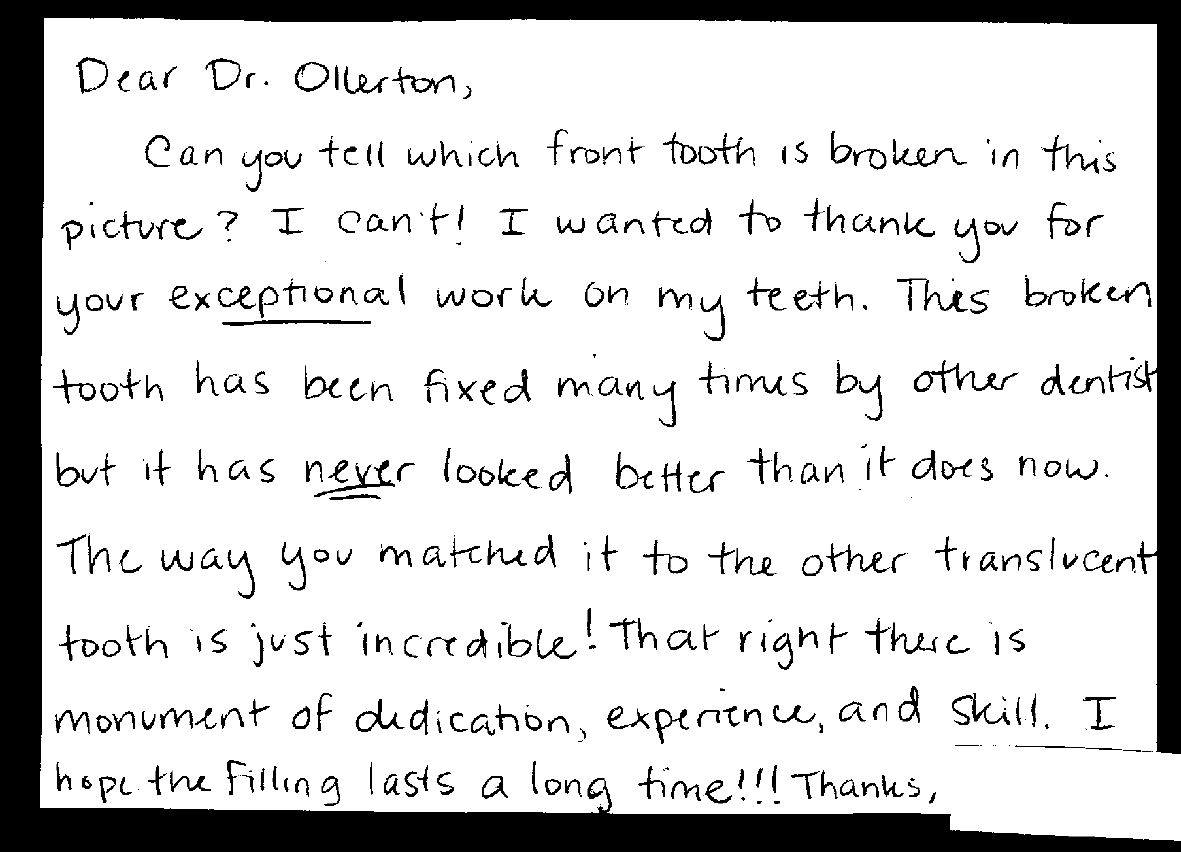 Dear Dr. Ollerton,
Can you tell which front tooth is broken in this
picture? I can't! I wanted to thank you for
your exceptional work on my teeth. This broken
tooth has been fixed many times by other dentist
but it has never looked better than it does now.
The way you matched it to the other translucent
tooth is just incredible! That right there is
monument of dedication, experience, and skill. I
hope the filling lasts a long time!!! Thanks,